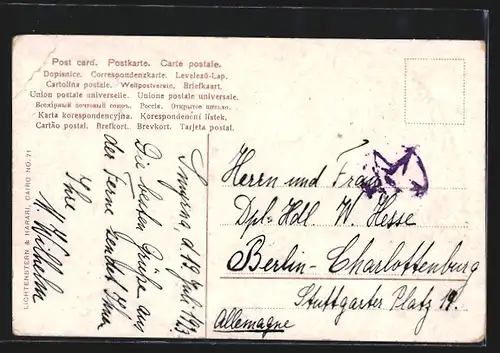 Post card. Postkarte. Carte postale.
Dopisnice. Correspondenzkarte. Levelező-Lap.
Cartolina postale. Weltpostverein. Briefkaart.
Union postale universelle. Unione postale universale.
Всемірный почтовый союзъ. Россія. Открытое письмо.
Karta korespondencyjna. Korespondenční lístek.
Cartão postal. Brefkort. Brevkort. Tarjeta postal.
LICHTENSTERN & HARARI, CAIRO NO. 71
Smyrna, d 13 Juli 1933
Die besten Grüße aus
der Ferne sendet Ihnen
Ihre
M. Wilhelm
Herrn und Frau
Dpl-Hdl. W. Hesse
Berlin-Charlottenburg
Stuttgarter Platz 19.
Allemagne